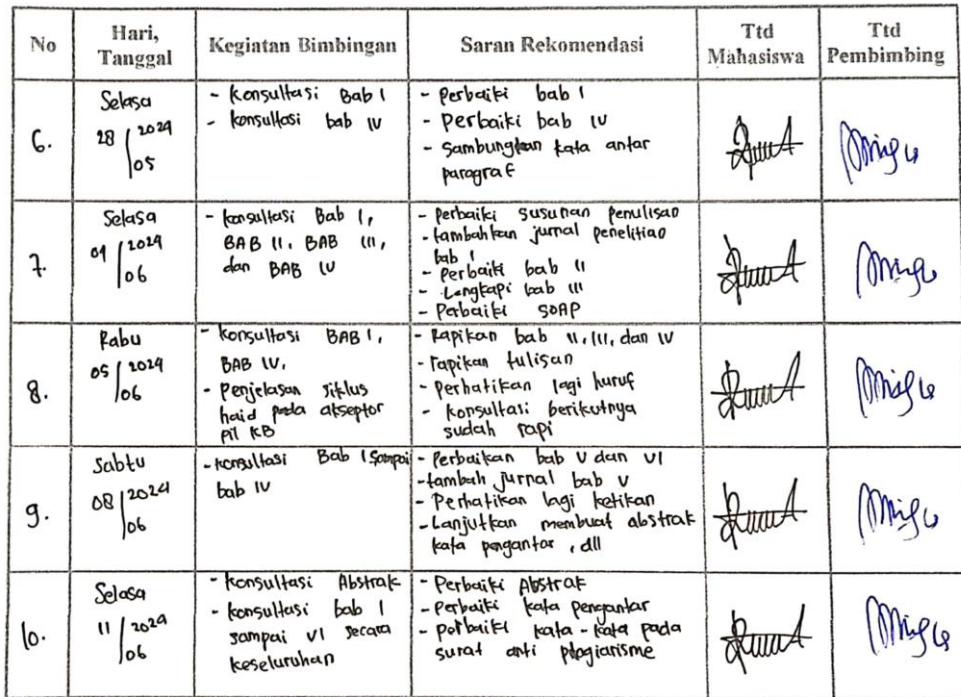 No
Hari,
Tanggal
Kegiatan Bimbingan
Saran Rekomendasi
Ttd
Mahasiswa
Ttd
Pembimbing
6.
Selasa
28 / 2024
05
- konsultasi Bab I
- konsultasi bab IV
- Perbaiki bab I
- Perbaiki bab IV
- Sambungkan kata antar
paragraf
7.
Selasa
04 / 2024
06
- konsultasi Bab I,
BAB II, BAB III,
dan BAB IV
- Perbaiki susunan penulisan
- tambahkan jurnal penelitian
bab I
- Perbaiki bab II
- Lengkapi bab III
- Perbaiki SOAP
8.
Rabu
05 / 2024
06
- konsultasi BAB I,
BAB IV,
- Penjelasan siklus
haid pada akseptor
pil KB
- Rapikan bab II, III, dan IV
- rapikan tulisan
- Perhatikan lagi huruf
- konsultasi berikutnya
sudah rapi
9.
Sabtu
08 / 2024
06
- konsultasi Bab I sampai
bab IV
- Perbaikan bab V dan VI
- tambah jurnal bab V
- Perhatikan lagi ketikan
- Lanjutkan membuat abstrak
kata pengantar, dll
10.
Selasa
11 / 2024
06
- konsultasi Abstrak
- konsultasi bab I
sampai VI secara
keseluruhan
- Perbaiki Abstrak
- Perbaiki kata pengantar
- perbaiki kata-kata pada
surat anti plagiarisme